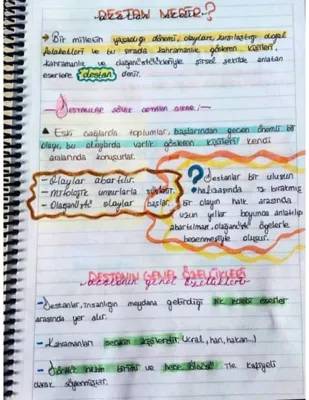 DESTAN NEDİR?
→ Bir milletin yaşadığı dönemi, olayları, karşılaştığı doğal
felaketleri ve bu sırada kahramanlık gösteren kişileri,
kahramanlık ve olağanüstülükleriyle şiirsel şekilde anlatan
eserlere destan denir.
▲ Eski çağlarda toplumlar, başlarından geçen önemli bir
olayı, bu olaylarda varlık gösteren kişileri kendi
aralarında konuşurlar.
- Olaylar abartılır.
- Mitolojik unsurlarla
- Olağanüstü olaylar başlar.
? Destanlar bir ulusun
hafızasında iz bırakmış
bir olayın halk arasında
uzun yıllar boyunca anlatılıp
abartılması, olağanüstü ögelerle
bezenmesiyle oluşur.
DESTANIN GENEL ÖZELLİKLERİ
- Destanlar, insanlığın meydana getirdiği ilk edebi eserler
arasında yer alır.
- Kahramanları seçkin kişilerdir. (kral, han, hakan...)
nazım birimi ve hece ölçüsü ile kafiyeli
olarak söylenmiştir.